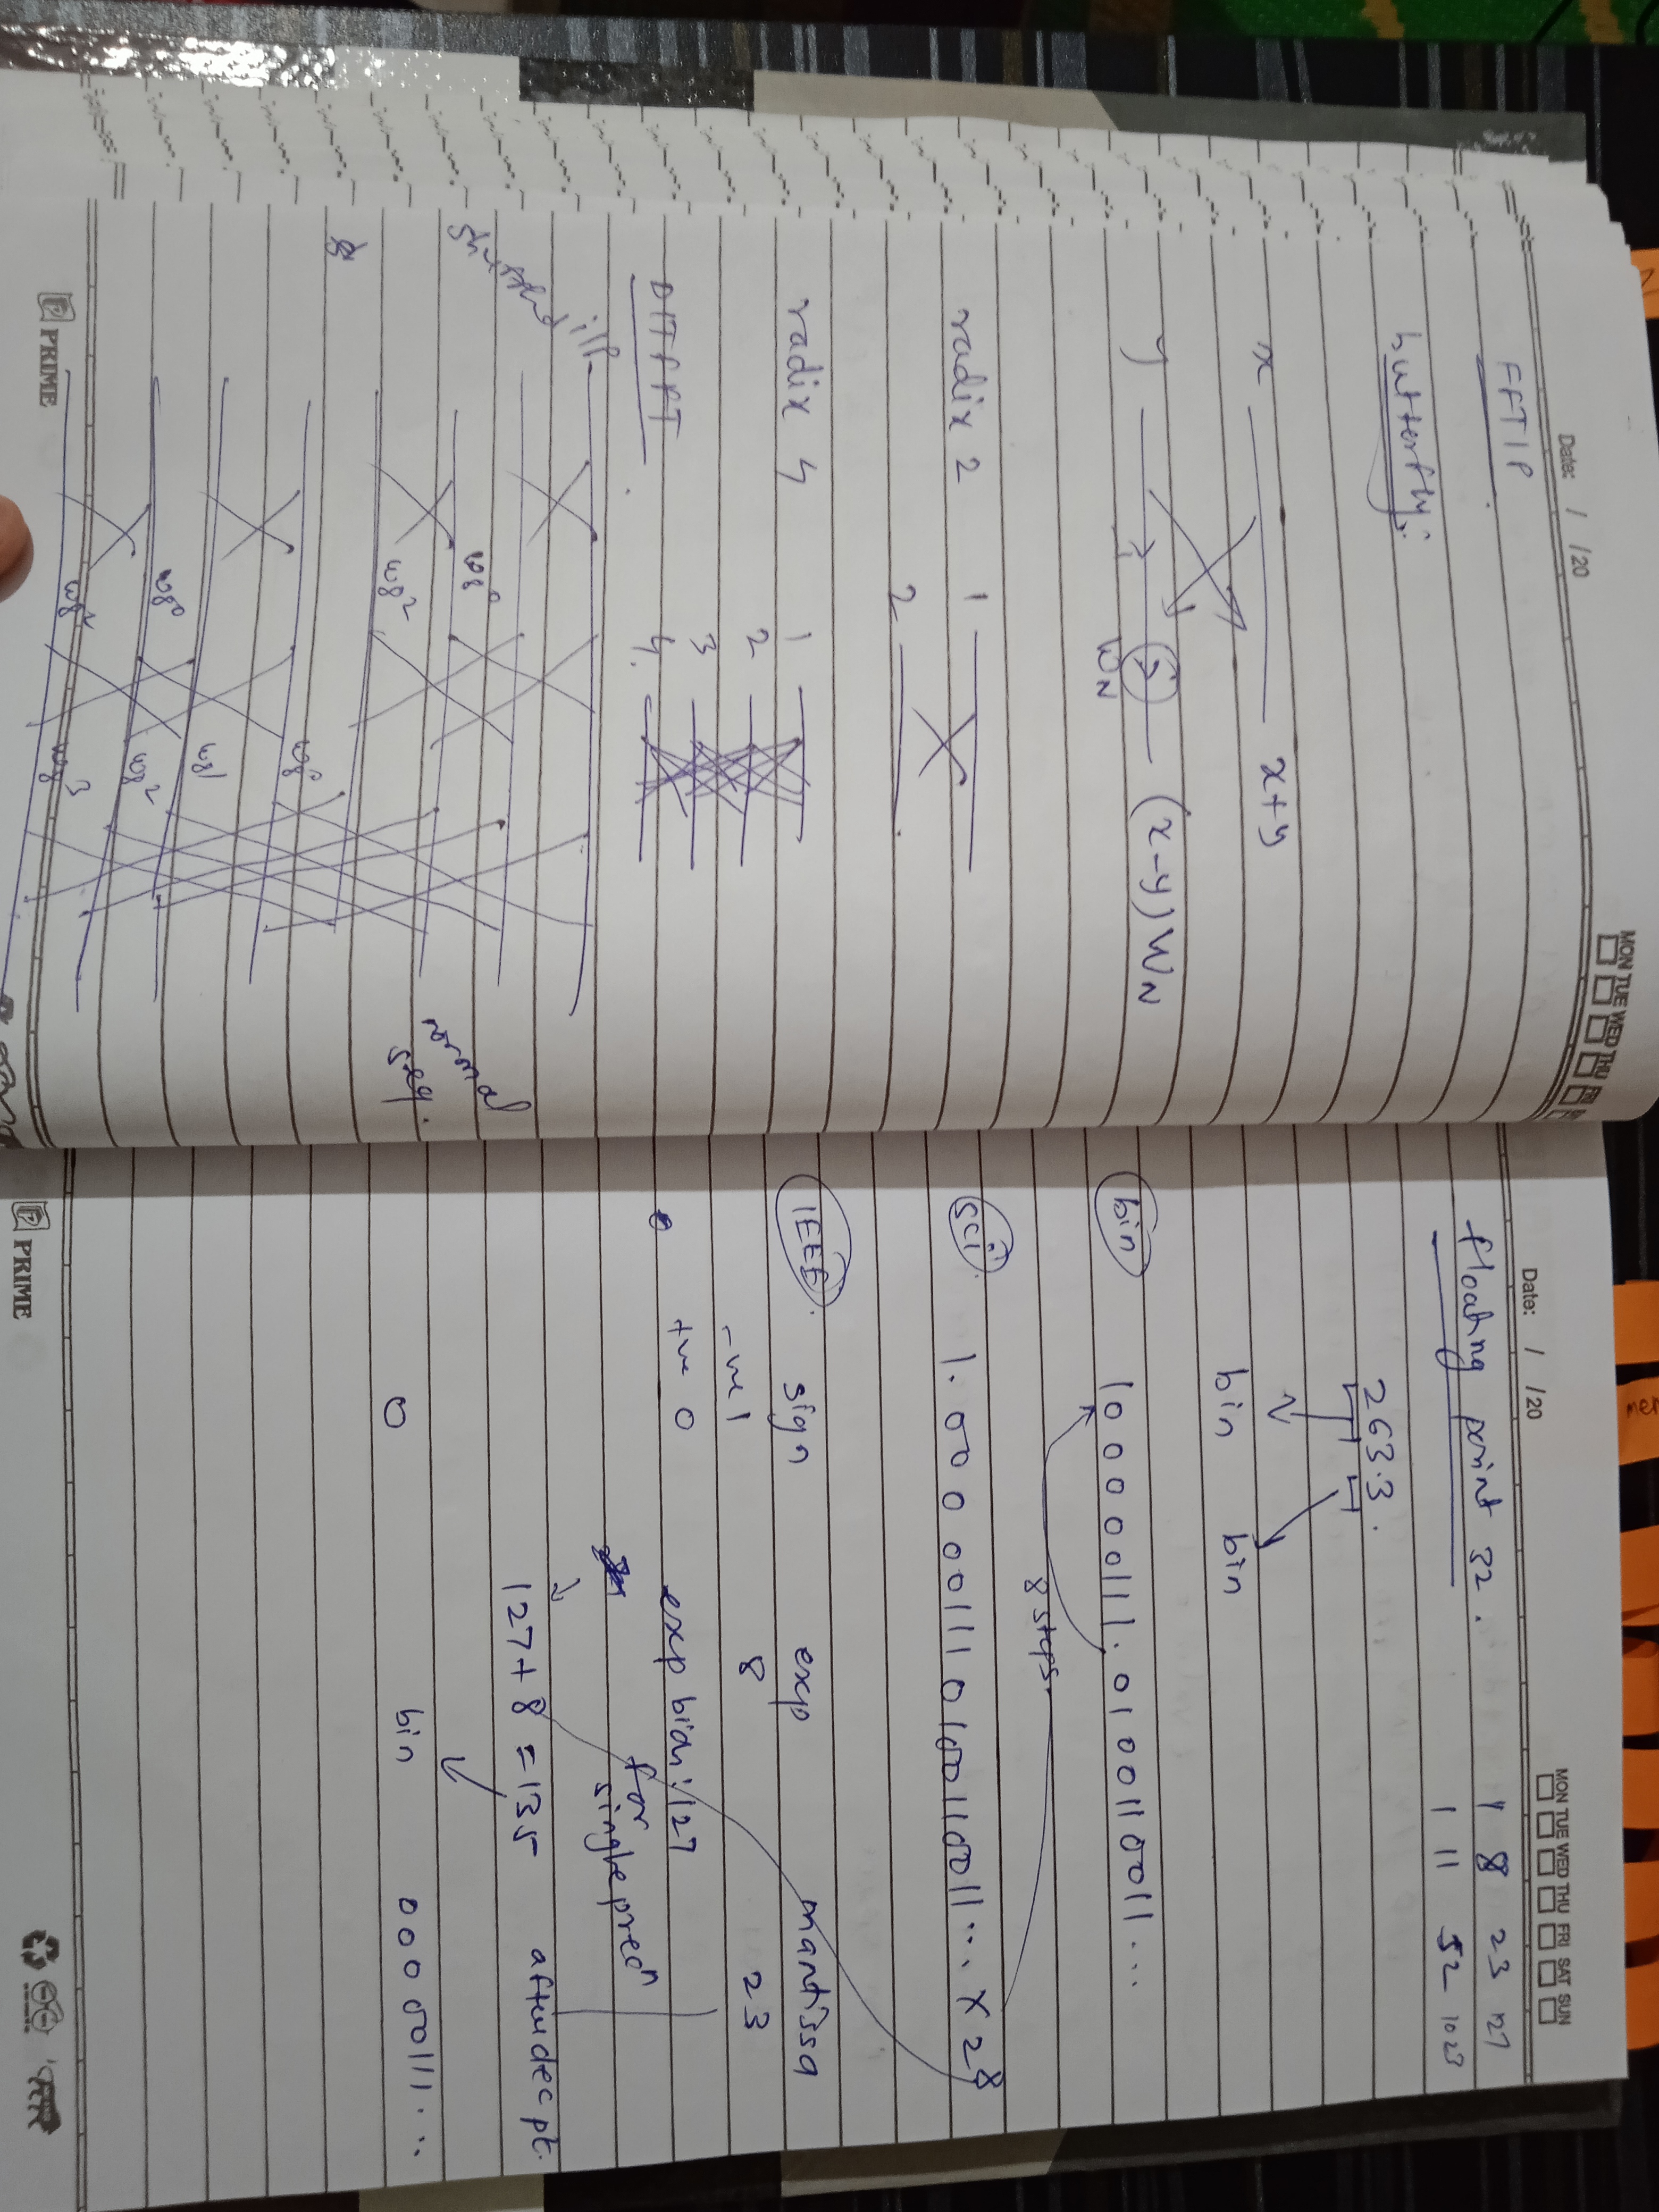 Date: / /20
MON TUE WED THU FRI
FFT IP
butterfly:
x x+y
y (x-y) WN
WN
radix 2 1
2
radix 4 1
2
3
4
DIT FFT
i/p
w8^0
w8^2
w8^0
w8^2
w8^0
w8^1
w8^2
w8^3
normal
seq.
PRIME
Date: / /20
MON TUE WED THU FRI SAT SUN
floating point 32. 1 8 23 127
1 11 52 1023
263.3.
bin bin
bin 100000111.010011001 1...
8 steps.
sci 1.00000111010011001 1... x 2^8
IEEE. sign exp mantissa
-ve 1 8 23
+ve 0 exp bias: 127
for
single precn
127 + 8 = 135 after dec pt.
0 bin 00000111...
PRIME